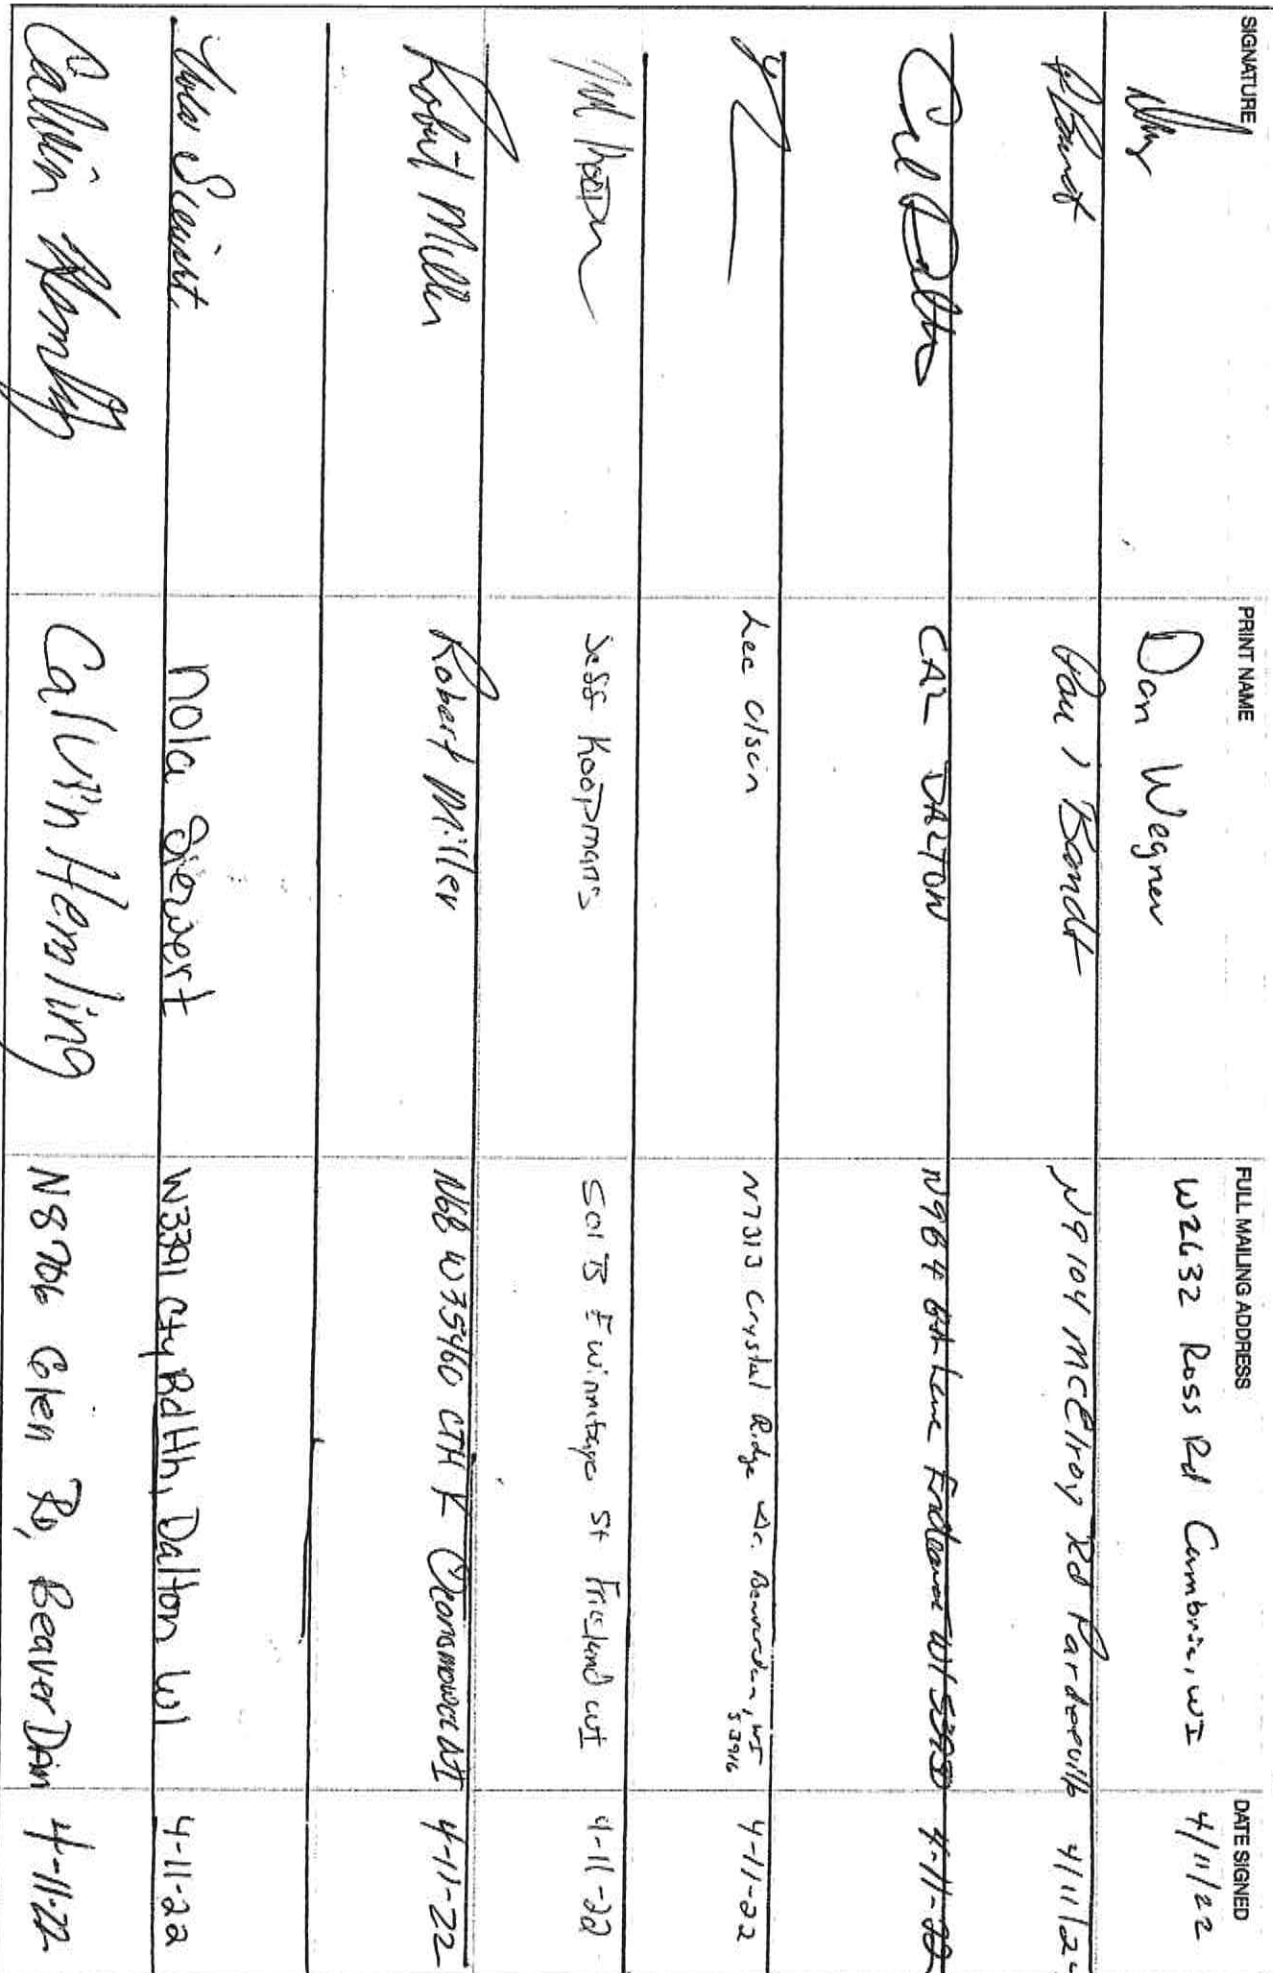 SIGNATURE PRINT NAME FULL MAILING ADDRESS DATE SIGNED
Dan Wegner W2632 Ross Rd Cambria, WI 4/11/22
Paul Bandt N9104 McElroy Rd Pardeeville 4/11/22
CAL DALTON Endeavor WI 4-11-22
Lee Olson N7313 Crystal Ridge Dr. WI 53916 4-11-22
Jeff Koopmans 501 B E Winnebago St Friesland WI 4-11-22
Robert Miller Robert Miller W35460 CTH K Oconomowoc WI 4-11-22
Nola Siewert Nola Siewert W3391 Cty Rd HH, Dalton WI 4-11-22
Calvin Hemling Calvin Hemling N8706 Glen Rd, Beaver Dam 4-11-22